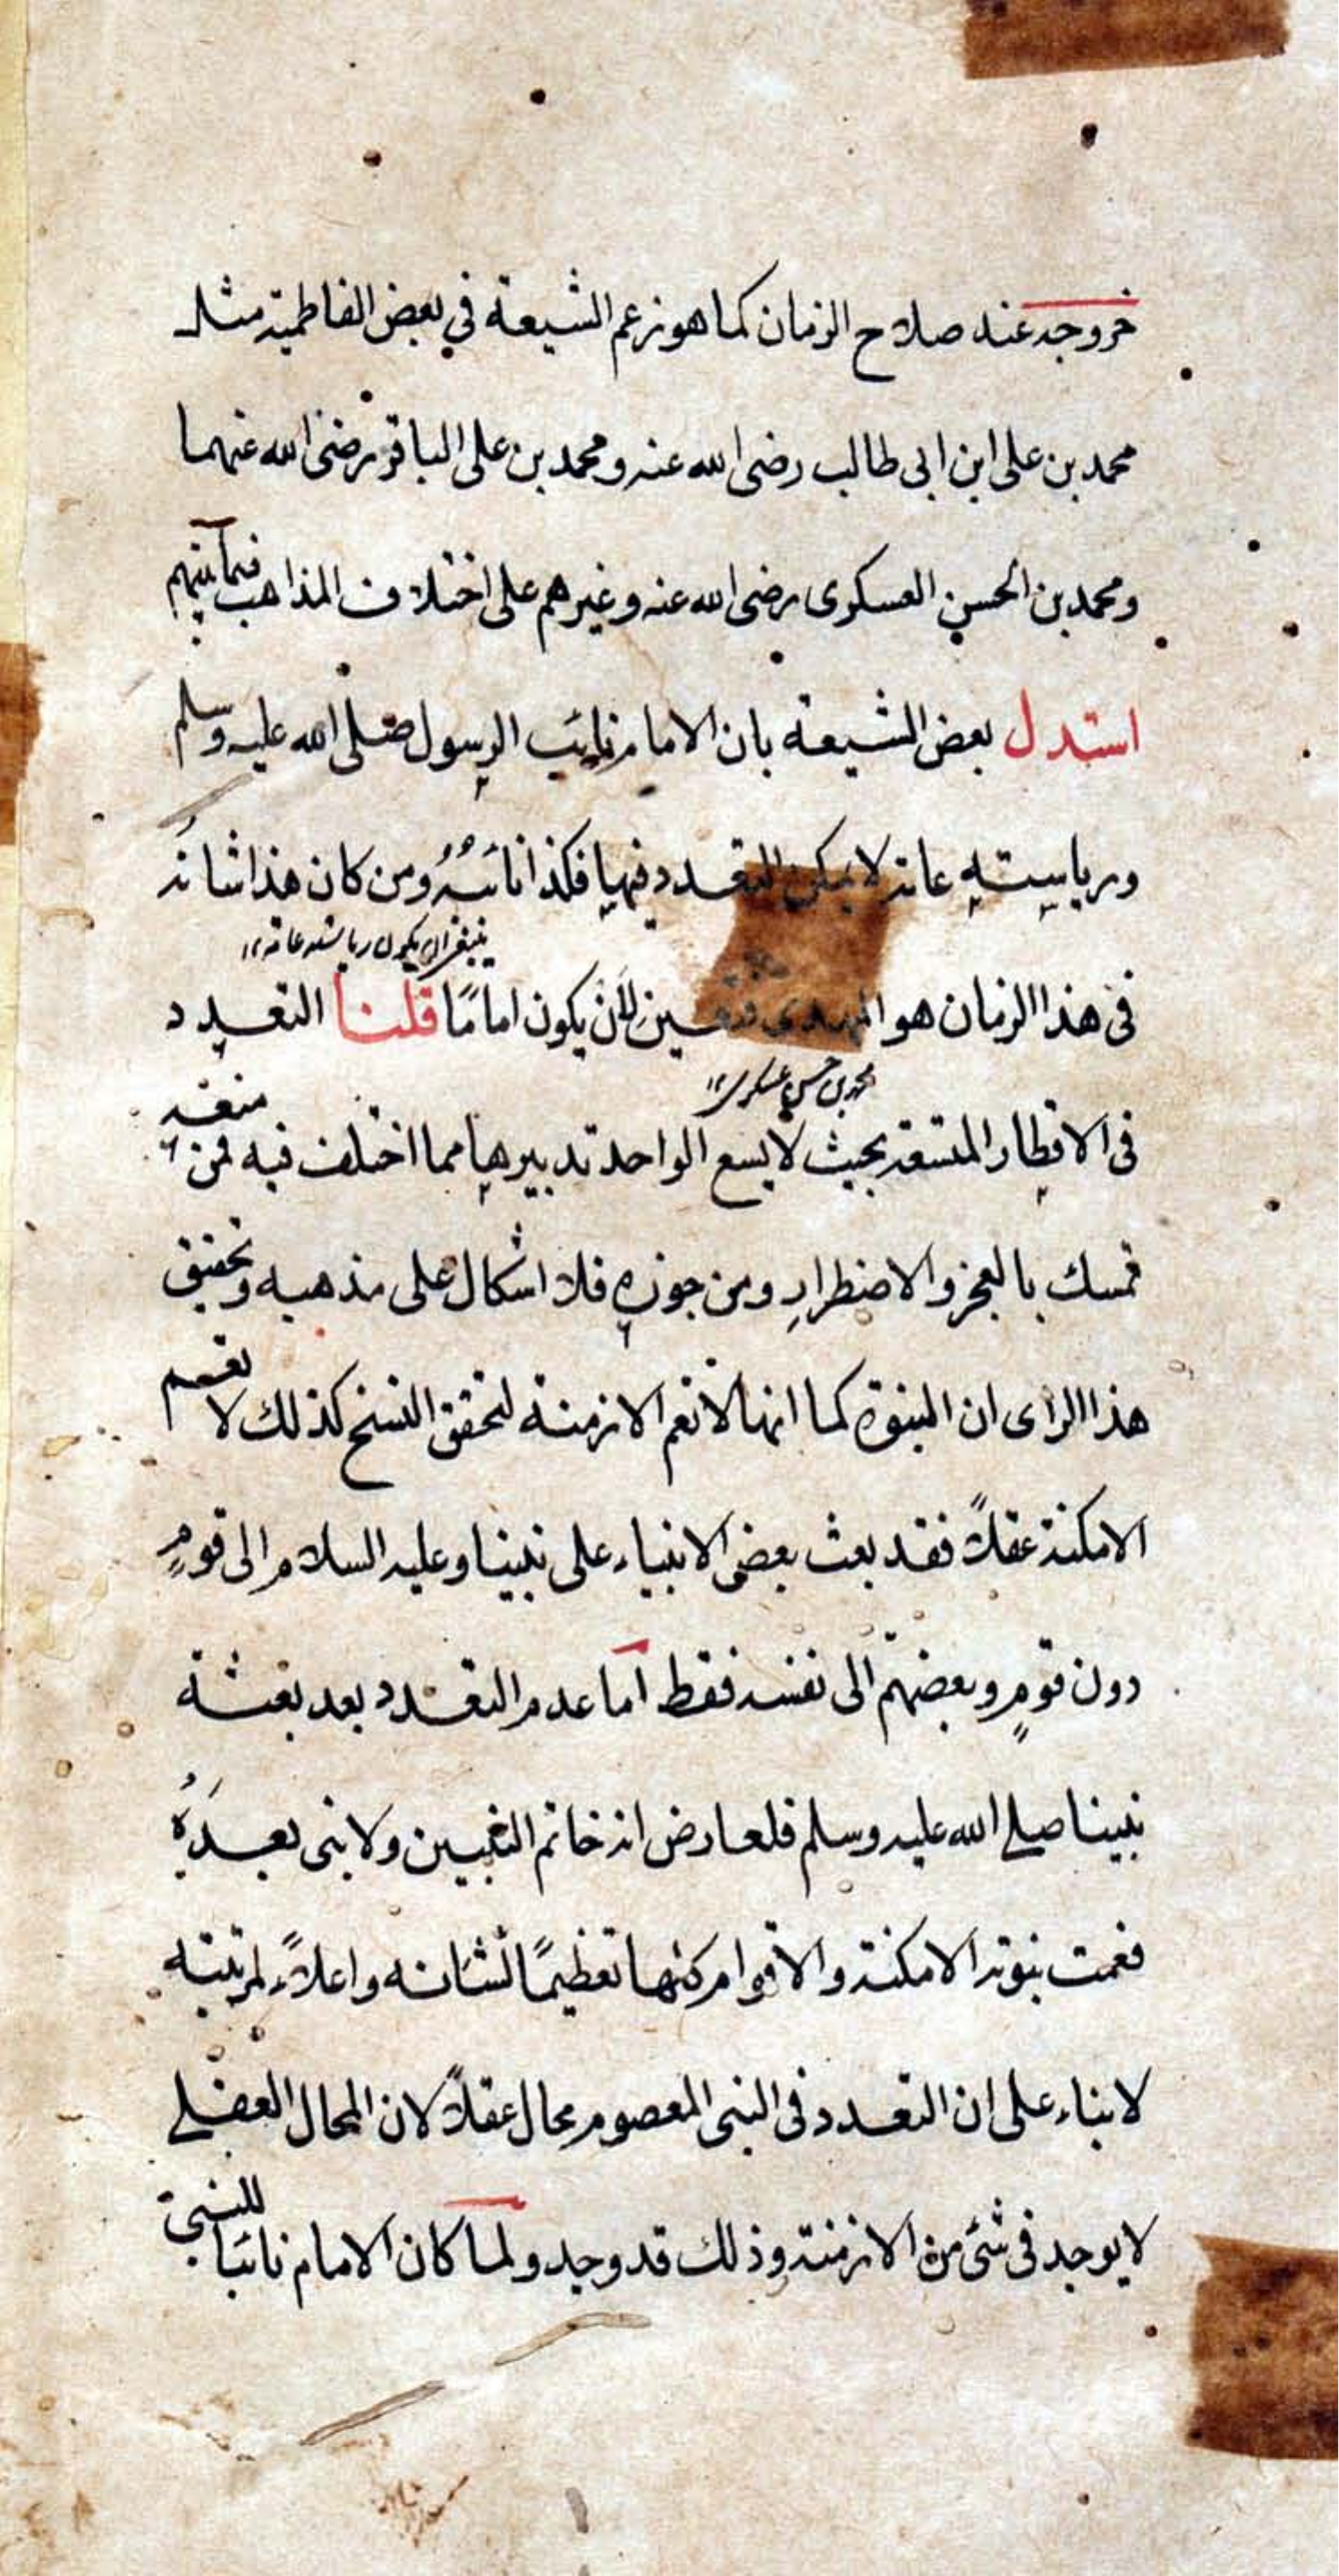 خروجه عند صلاح الزمان كما هو زعم الشيعة في بعض الفاطمية مثل
محمد بن علی ابن ابی طالب رضی الله عنه ومحمد بن علی الباقر رضی الله عنهما
ومحمد بن الحسن العسكری رضی الله عنه وغيرهم علی اختلاف المذاهب فيما بينهم
استدل بعض الشيعة بان الامام نايب الرسول صلی الله عليه وسلم
ورياسته عامة لا يمكن التعدد فيها فكذا نائبهُ ومن كان هذا شانهُ
ينبغی ان يكون رياسته عامة ١٢
فی هذا الزمان هو المهدی فتعين لأن يكون امامًا قلنا التعدد
محمد بن حسن عسكری ١٢
فی الاقطار المتسعة بحيث لا يسع الواحد تدبيرها مما اختلف فيه فمن منعه
تمسك بالعجز والاضطرار ومن جوزه فلا اشكال علی مذهبه وتحقيق
هذا الرای ان النبوة كما انها لا تعم الازمنة لتحقق النسخ كذلك لا تعم
الامكنة عقلاً فقد بعث بعض الانبياء علی نبينا وعليه السلام الی قومٍ
دون قومٍ وبعضهم الی نفسه فقط اما عدم التعدد بعد بعثة
نبينا صلی الله عليه وسلم فلعارض انه خاتم النبيين ولا نبی بعدَهُ
فعمت نبوته الامكنة والاقوام كلها تعظيمًا لشانه واعلاءً لمرتبته
لا بناء علی ان التعدد فی النبی المعصوم محال عقلاً لان المحال العقلی
لا يوجد فی شیء من الازمنة وذلك قد وجد ولما كان الامام نائبا للنبی